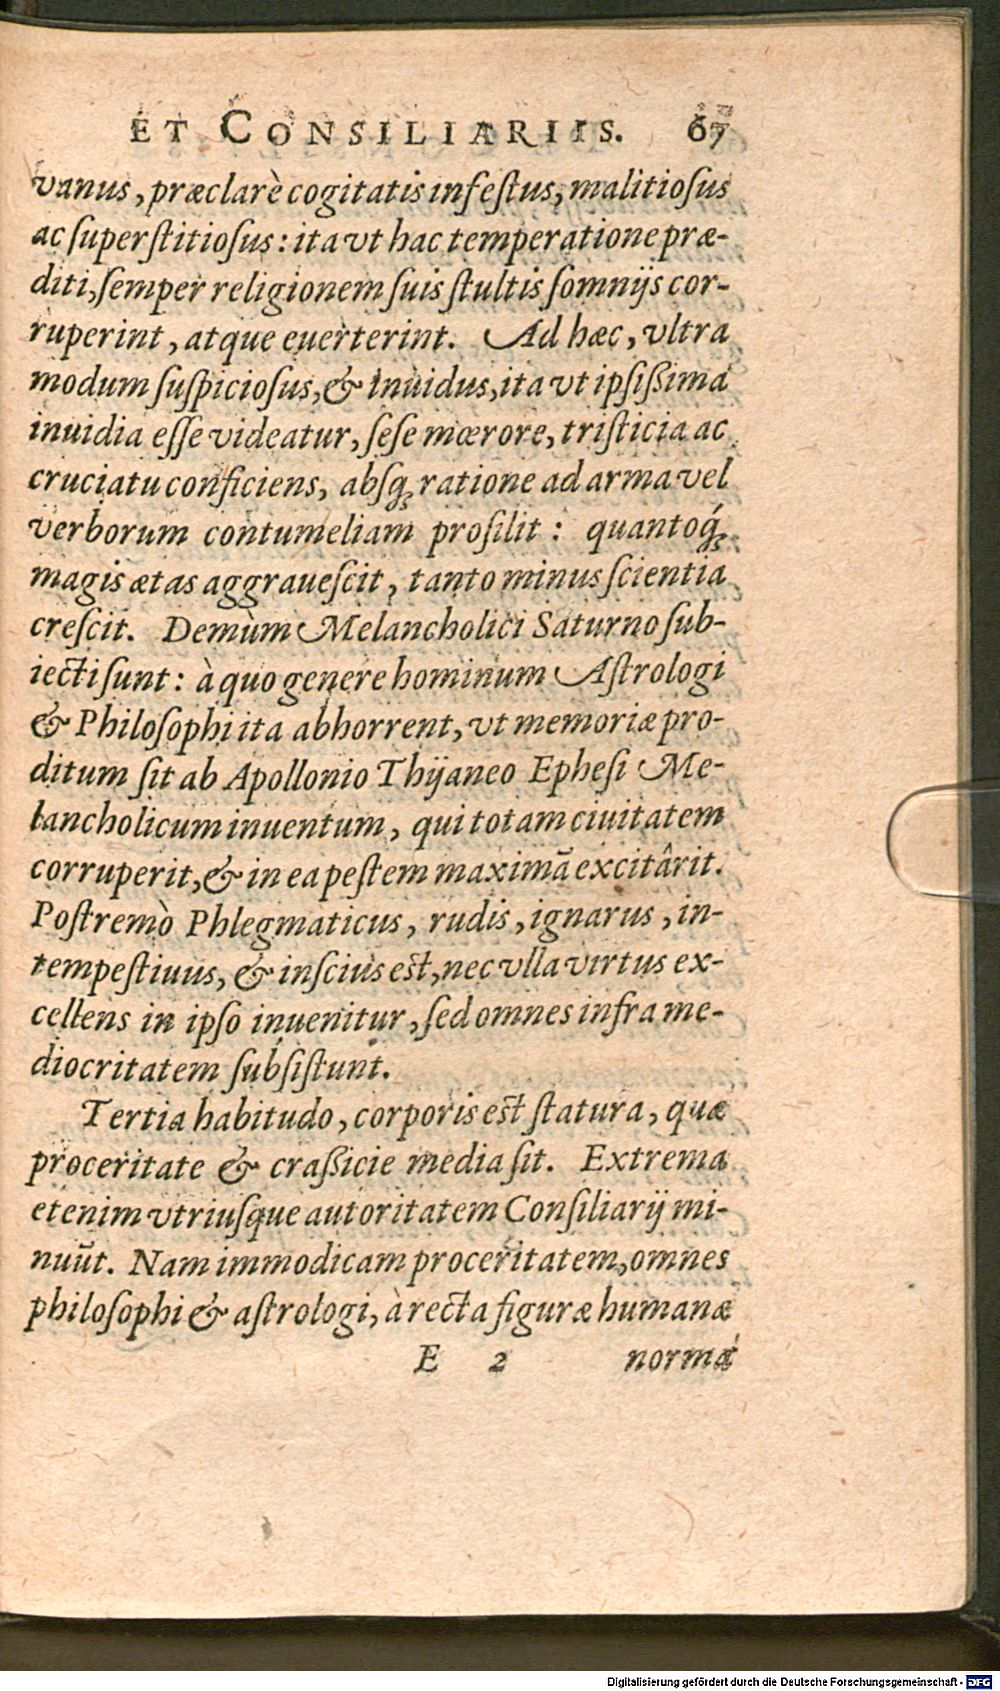 ET CONSILIARIIS. 67
vanus, præclarè cogitatis infestus, malitiosus
ac superstitiosus: ita vt hac temperatione præ-
diti, semper religionem suis stultis somnijs cor-
ruperint, atque euerterint. Ad hæc, vltra
modum suspiciosus, & inuidus, ita vt ipsissima
inuidia esse videatur, sese mœrore, tristicia ac
cruciatu conficiens, absq; ratione ad arma vel
verborum contumeliam prosilit: quantoq́;
magis ætas aggrauescit, tanto minus scientia
crescit. Demùm Melancholici Saturno sub-
iecti sunt: à quo genere hominum Astrologi
& Philosophi ita abhorrent, vt memoriæ pro-
ditum sit ab Apollonio Thijaneo Ephesi Me-
lancholicum inuentum, qui totam ciuitatem
corruperit, & in ea pestem maximā excitârit.
Postremò Phlegmaticus, rudis, ignarus, in-
tempestiuus, & inscius est, nec vlla virtus ex-
cellens in ipso inuenitur, sed omnes infra me-
diocritatem subsistunt.
Tertia habitudo, corporis est statura, quæ
proceritate & crassicie media sit. Extrema
etenim vtriusque autoritatem Consiliarij mi-
nuūt. Nam immodicam proceritatem, omnes
philosophi & astrologi, à recta figuræ humanæ
E 2 norma
Digitalisierung gefördert durch die Deutsche Forschungsgemeinschaft - DFG